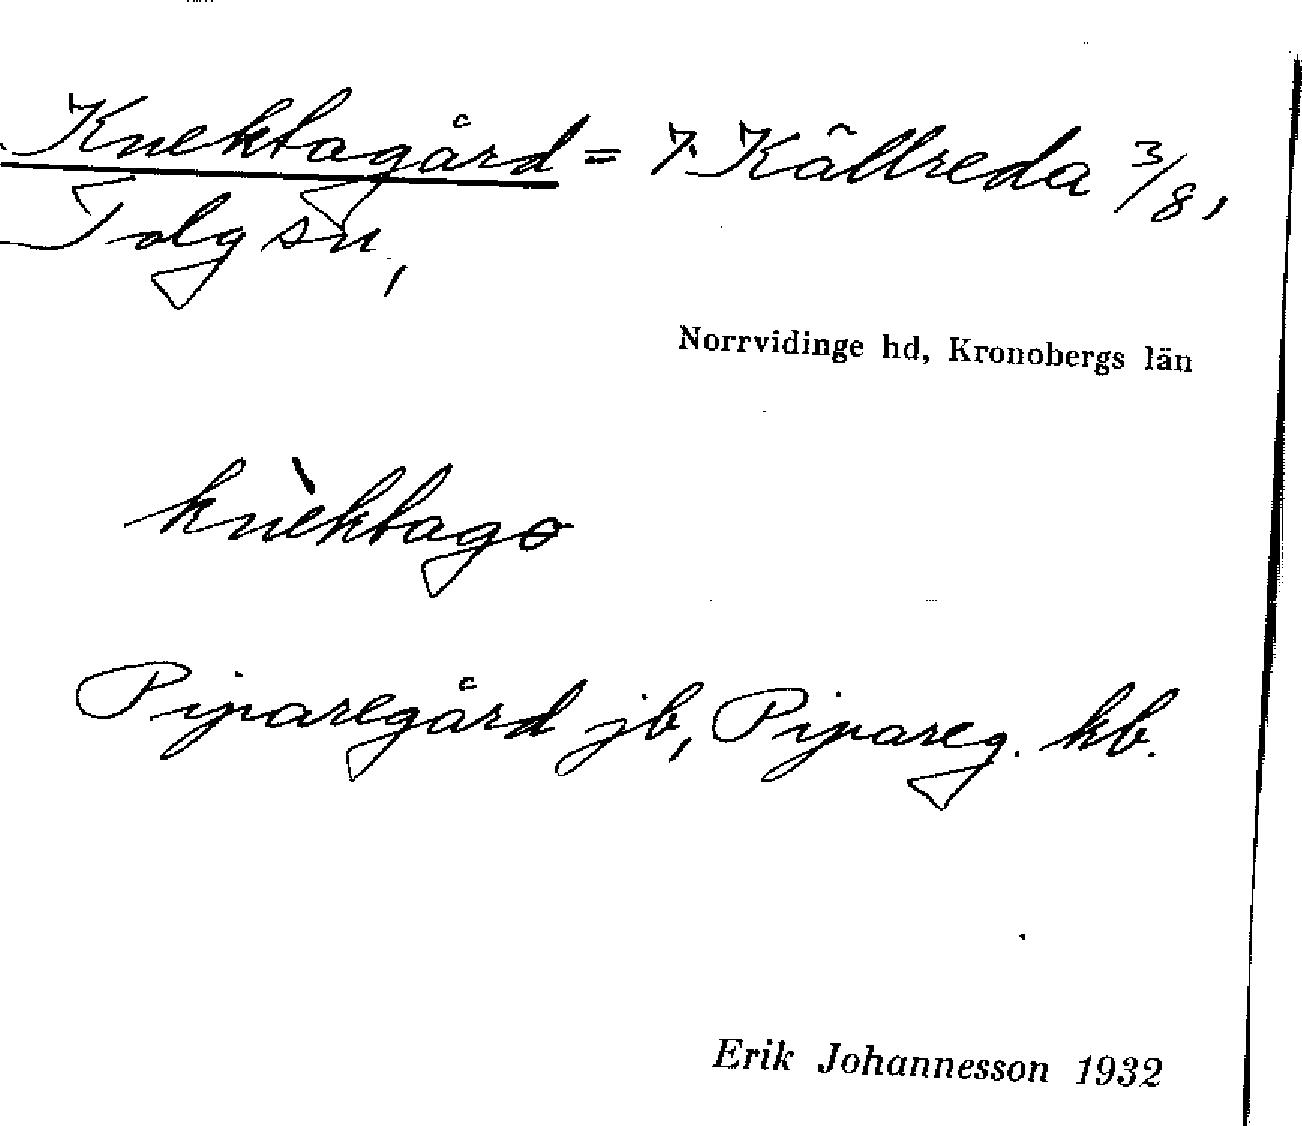 Knektagård = 7. Källreda 3/8,
Tolg sn,
Norrvidinge hd, Kronobergs län
knèktago
Piparegård jb, Pipareg. kb.
Erik Johannesson 1932